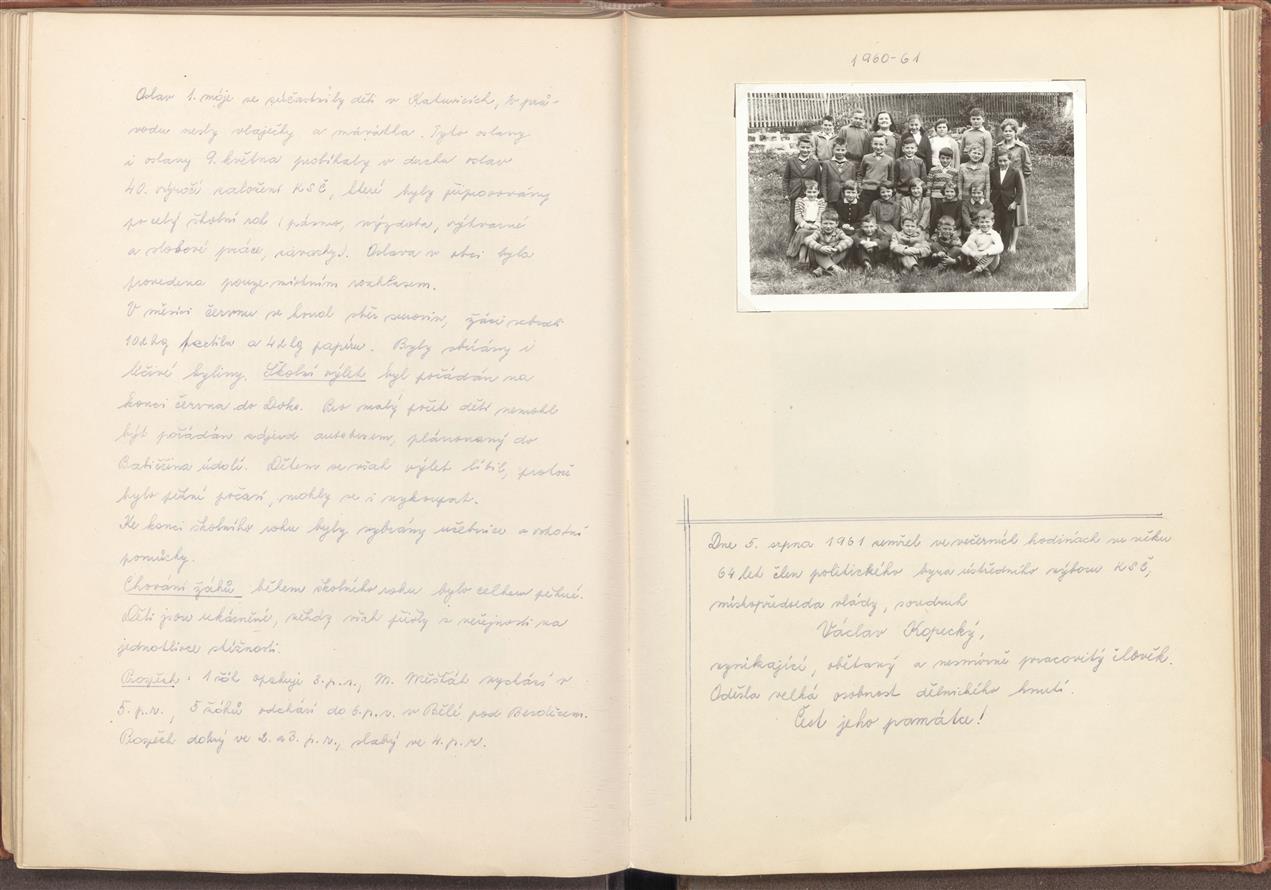 Oslav 1. máje se zúčastnily děti v Katusicích, v prů-
vodu nesly vlaječky a mávátka. Tyto oslavy
i oslavy 9. května probíhaly v duchu oslav
40. výročí založení KSČ, které byly připravovány
po celý školní rok (pásmo, výzdoba, výtvarné
a slohové práce, závazky). Oslava v obci byla
provedena pouze místním rozhlasem.
V měsíci červnu se konal sběr surovin, žáci sebrali
kg textilu a kg papíru. Byly sbírány i
léčivé byliny. Školní výlet byl pořádán na
konci června do Doks. Pro malý počet dětí nemohl
být pořádán zájezd autobusem, plánovaný do
Babiččina údolí. Dětem se však výlet líbil, protože
bylo pěkné počasí, mohly se i vykoupat.
Ke konci školního roku byly vybrány učebnice a ostatní
pomůcky.
Chování žáků během školního roku bylo celkem pěkné.
Děti jsou ukázněné, někdy však přišly z veřejnosti na
jednotlivce stížnosti.
Prospěch: 1 žák opakuje 3. p. r., M. vychází v
5. p. r., 5 žáků odchází do 6. p. r. v Bělé pod Bezdězem.
Prospěch dobrý ve 2. a 3. p. r., slabý ve 4. p. r.
1960-61
Dne 5. srpna 1961 zemřel ve večerních hodinách ve věku
64 let člen politického byra ústředního výboru KSČ,
místopředseda vlády, soudruh
Václav Kopecký,
vynikající, obětavý a nesmírně pracovitý člověk.
Odešla velká osobnost dělnického hnutí.
Čest jeho památce!